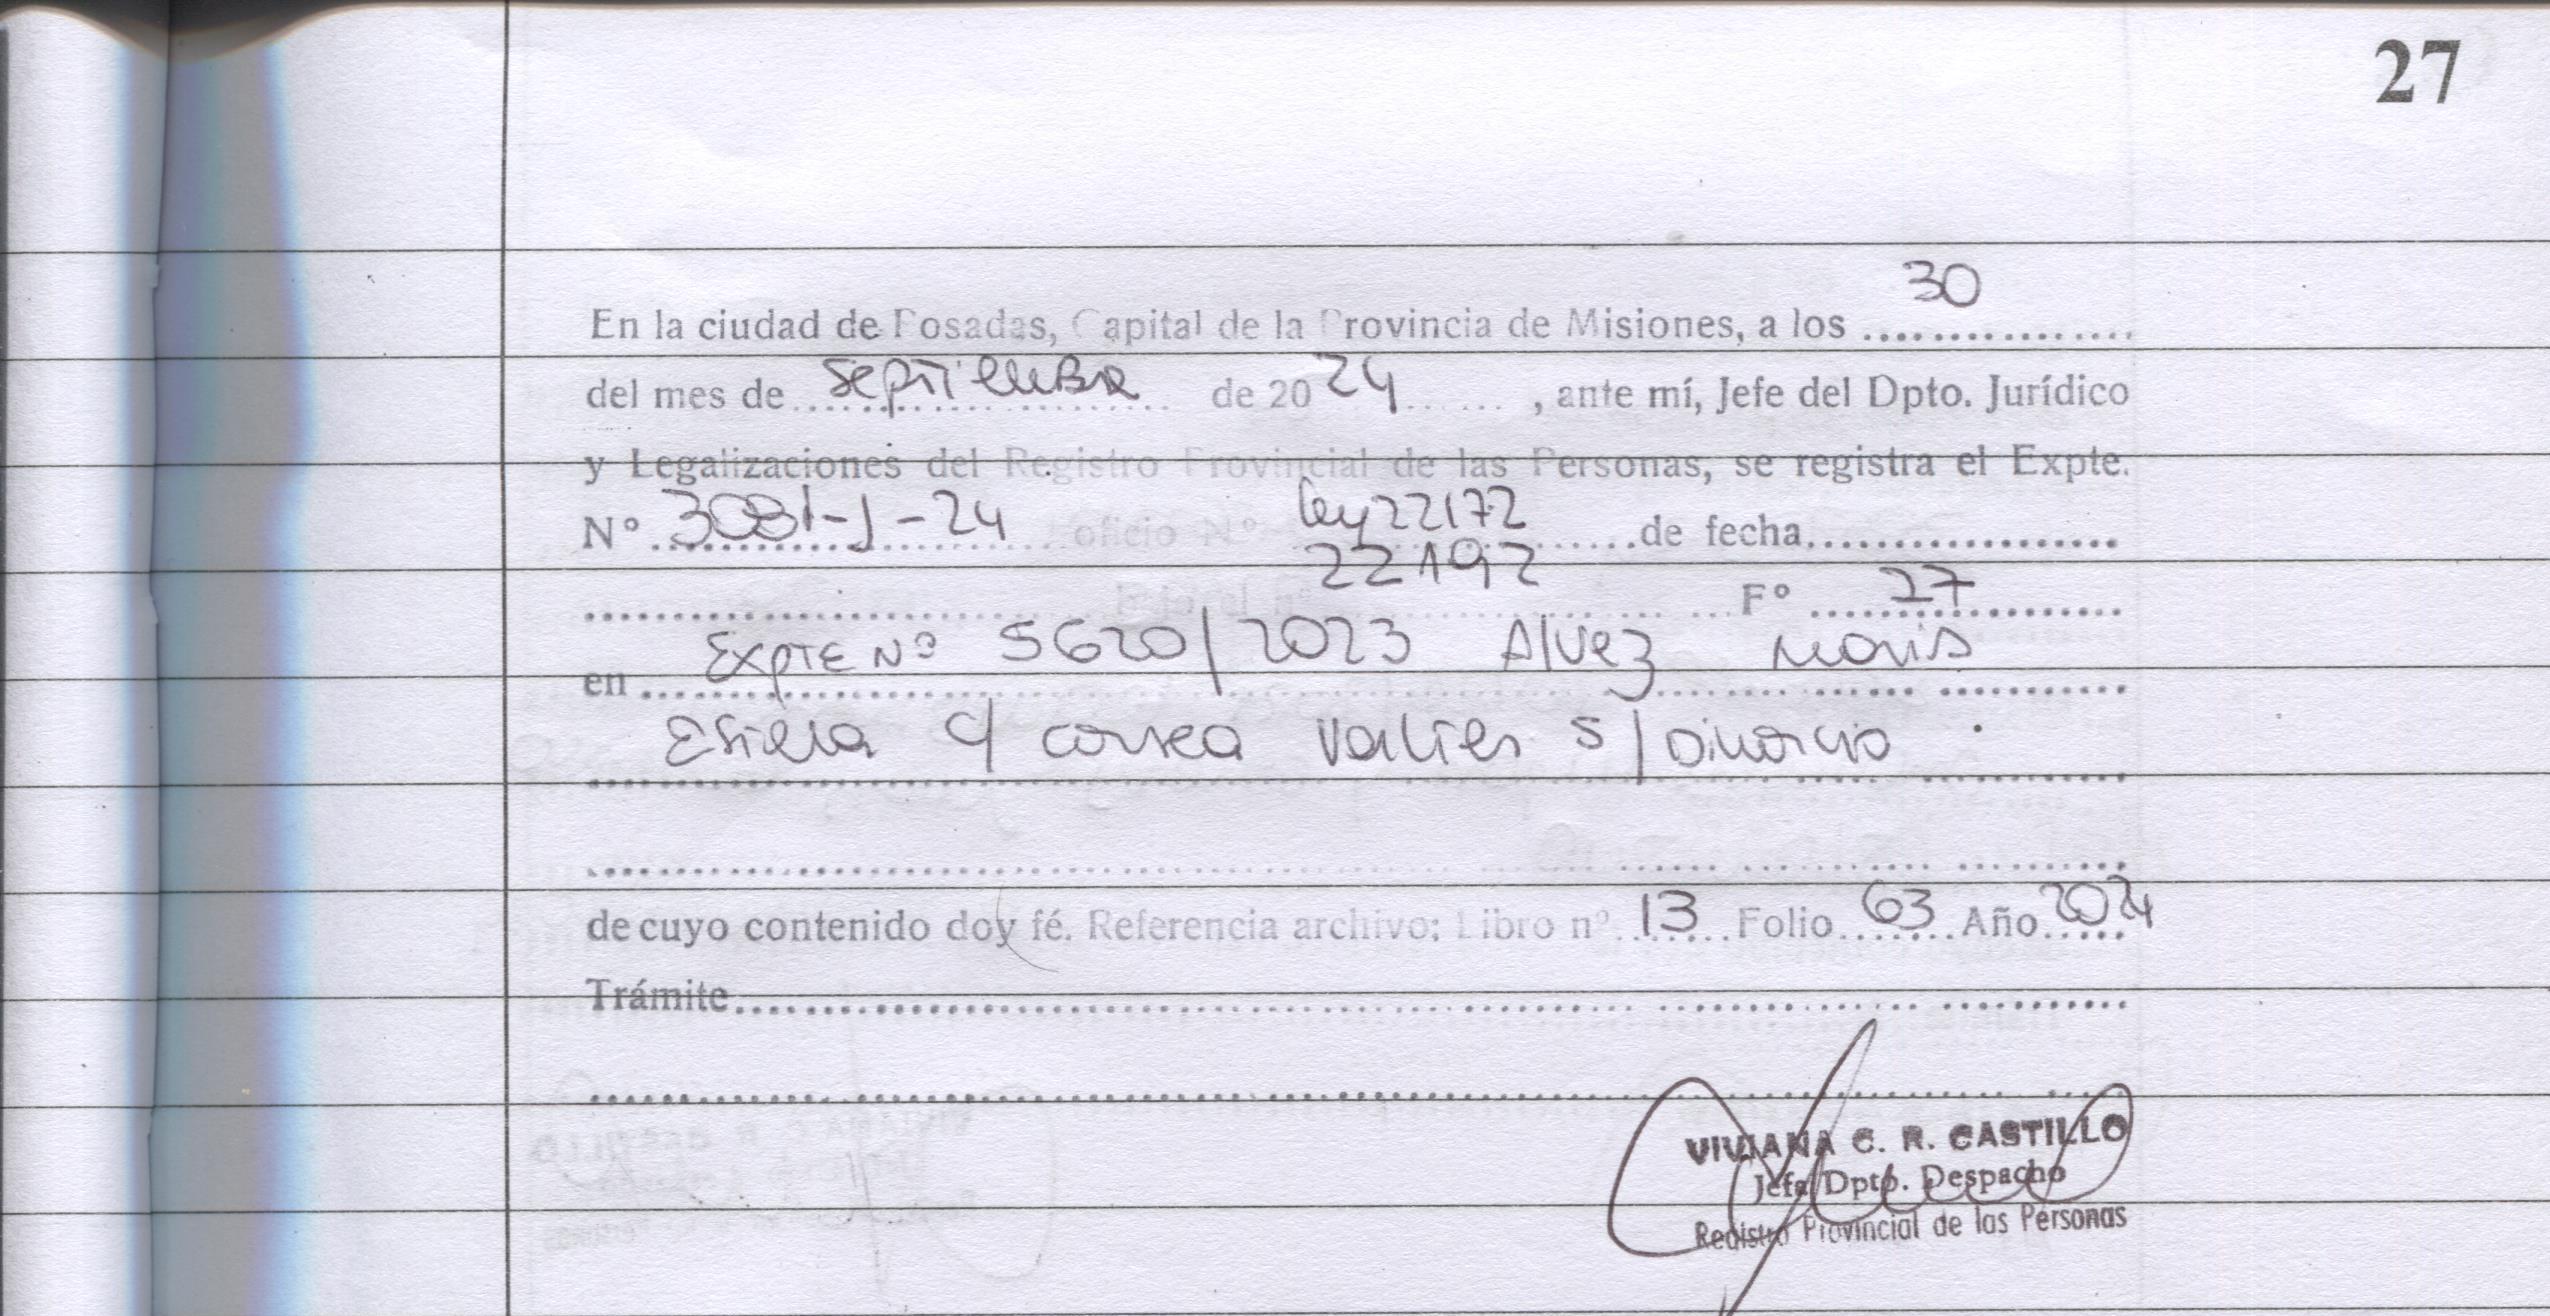 27
En la ciudad de Posadas, Capital de la Provincia de Misiones, a los 30
del mes de septiembre de 2024, ante mí, Jefe del Dpto. Jurídico
y Legalizaciones del Registro Provincial de las Personas, se registra el Expte.
N° 3081-J-24 oficio N° ley 22172 de fecha
22192 F° 27
en Expte N° 5620/2023 Alvez Maris
Estela c/ Correa Valter s/ Divorcio.
de cuyo contenido doy fé. Referencia archivo: Libro n° 13 Folio 63 Año 2024
Trámite
VIVIANA C. R. CASTILLO
Jefa Dpto. Despacho
Registro Provincial de las Personas